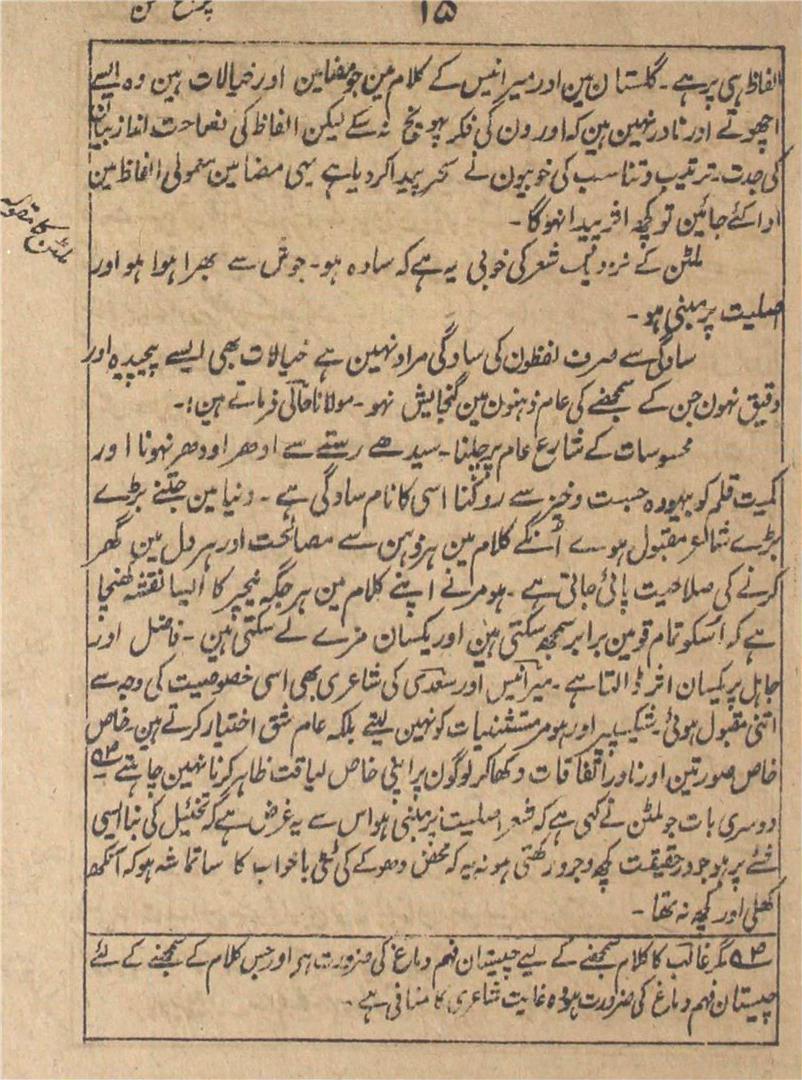 ۱۵
الفاظ ہی پر ہے ۔ گلستان مین اور میر انیس کے کلام مین جو مضامین اور خیالات ہین وہ ایسے
اچھوتے اور نادر نہین ہین کہ اورون کی فکر پہونچ نہ سکے لیکن الفاظ کی فصاحت انداز بیان
کی جدت ۔ ترتیب و تناسب کی خوبیون نے سحر پیدا کر دیا ہے یہی مضامین معمولی الفاظ مین
ادا کئے جائین تو کچھ اثر پیدا نہوگا ۔
ملٹن کا مقولہ
ملٹن کے نزدیک شعر کی خوبی یہ ہے کہ سادہ ہو ۔ جوش سے بھرا ہوا ہو اور
اصلیت پر مبنی ہو ۔
سادگی سے صرف لفظون کی سادگی مراد نہین ہے خیالات بھی ایسے پیچیدہ اور
دقیق نہون جن کے سمجھنے کی عام ذہنون مین گنجایش نہو ۔ مولانا حالی فرماتے ہین :۔
محسوسات کے شارع عام پر چلنا ۔ سیدھے رستے سے ادھر اودھر نہونا اور
کمیت قلم کو بیہودہ جست و خیز سے روکنا اسی کا نام سادگی ہے ۔ دنیا مین جتنے بڑے
بڑے شاعر مقبول ہوے اُنکے کلام مین ہر ذہن سے مصالحت اور ہر دل مین گھر
کرنے کی صلاحیت پائی جاتی ہے ۔ ہومر نے اپنے کلام مین ہر جگہ نیچر کا ایسا نقشہ کھنچا
ہے کہ اُسکو تمام قومین برابر سمجھ سکتی ہین اور یکسان مزے لے سکتی ہین ۔ فاضل اور
جاہل پر یکسان اثر ڈالتا ہے ۔ میر انیس اور سعدی کی شاعری بھی اسی خصوصیت کی وجہ سے
اتنی مقبول ہوئی ۔ شیکسپیر اور ہومر مستثنیات کو نہین لیتے بلکہ عام شق اختیار کرتے ہین ۔ خاص
خاص صورتین اور نادر اتفاقات دکھا کر لوگون پر اپنی خاص لیاقت ظاہر کرنا نہین چاہتے
دوسری بات جو ملٹن نے کہی ہے کہ شعر اصلیت پر مبنی ہو اس سے یہ غرض ہے کہ تخئیل کی بنا ایسی
شئے پر ہو جو در حقیقت کچھ وجود رکھتی ہو نہ یہ کہ محض دھوکے کی ٹٹی یا خواب کا سا تماشہ ہو کہ آنکھ
کھلی اور کچھ نہ تھا ۔
مگر غالب کا کلام سمجھنے کے لیے چیستان فہم دماغ کی ضرورت ہے اور جس کلام کے سمجھنے کے لئے
چیستان فہم دماغ کی ضرورت ہو وہ غایت شاعری کا منافی ہے ۔